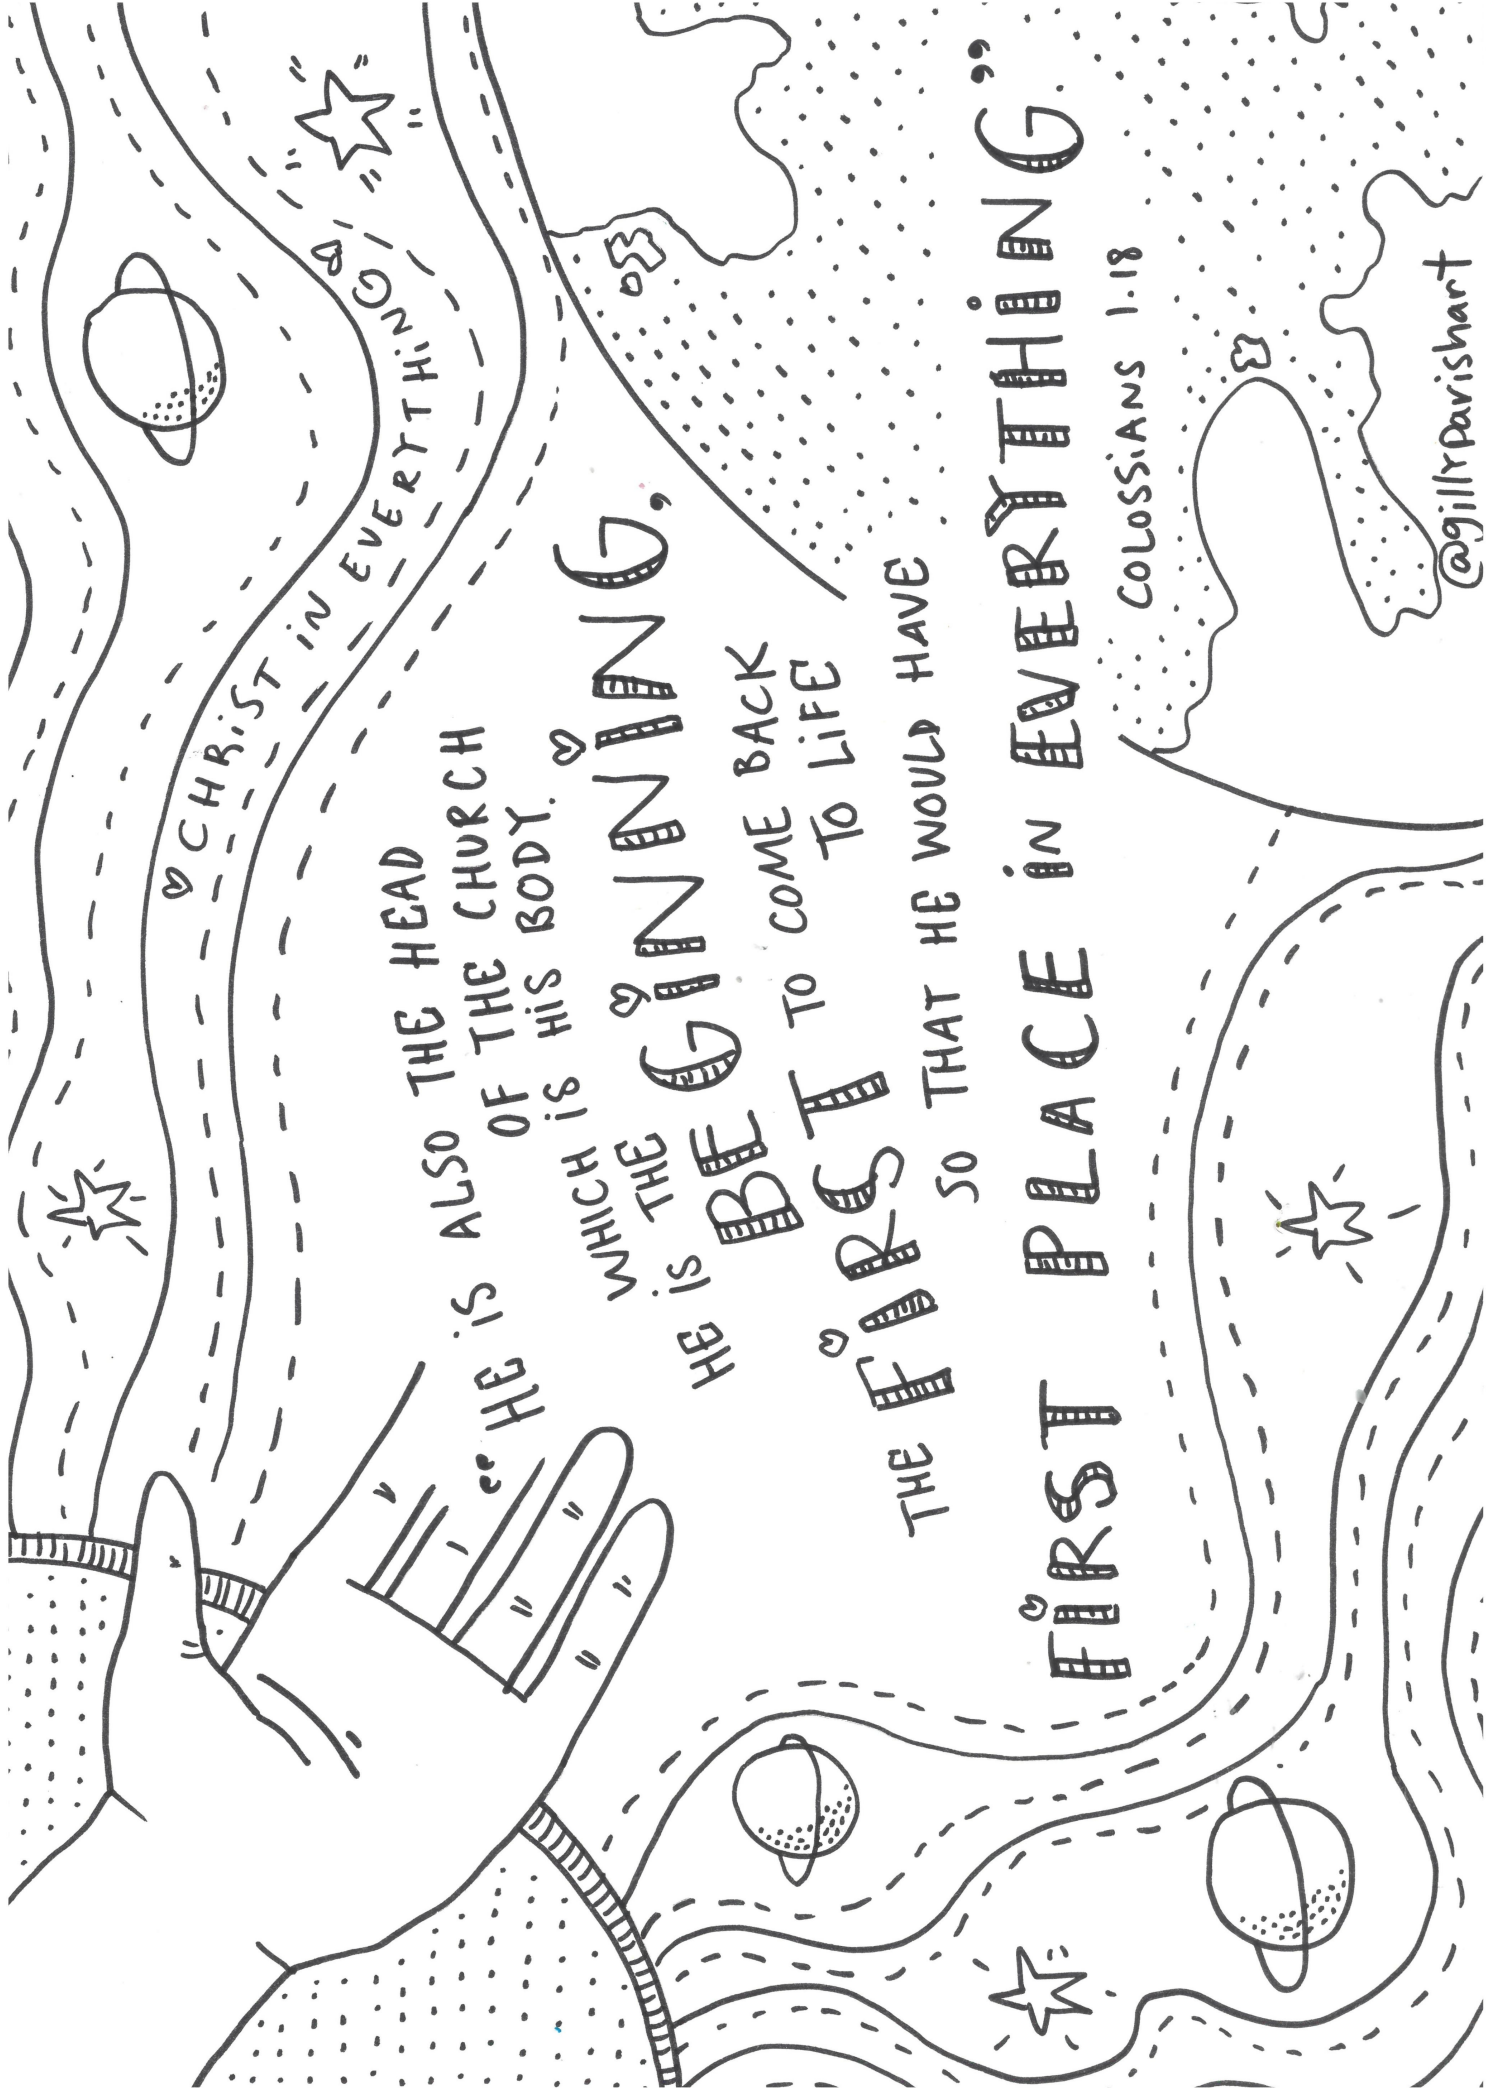 ♡ CHRiST iN EVERYTHiNG ♡
“HE iS ALSO THE HEAD
OF THE CHURCH
WHICH iS HiS BODY.
HE iS THE
BEGiNNiNG,
THE FiRST TO COME BACK
TO LiFE
SO THAT HE WOULD HAVE
FiRST PLACE iN EVERYTHiNG”
COLOSSiANS 1.18
@gillyparishart